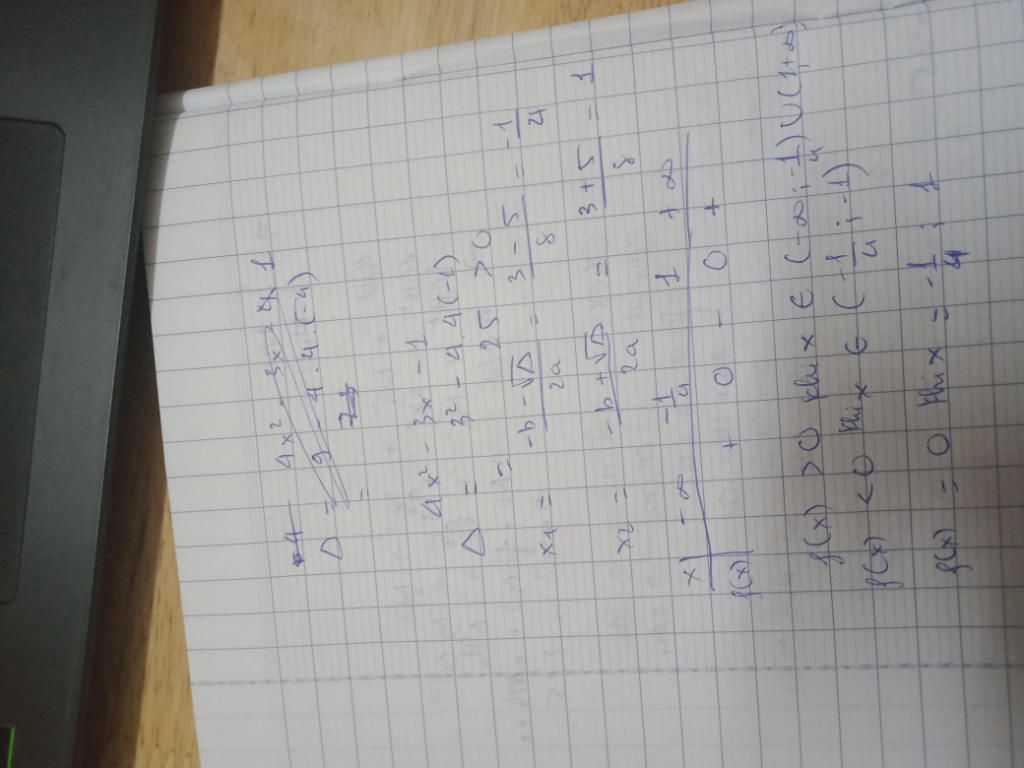 4x² - 3x - 1
Δ = 9 - 4.4.(-4)
=
4x² - 3x - 1
Δ = 3² - 4.4(-1)
= 25 > 0
x₁ = -b - √Δ / 2a = 3 - 5 / 8 = -1/4
x₂ = -b + √Δ / 2a = 3 + 5 / 8 = 1
x -∞ -1/4 1 +∞
f(x) + 0 - 0 +
f(x) > 0 khi x ∈ (-∞; -1/4) ∪ (1, +∞)
f(x) < 0 khi x ∈ (-1/4; -1)
f(x) = 0 khi x = -1/4; 1